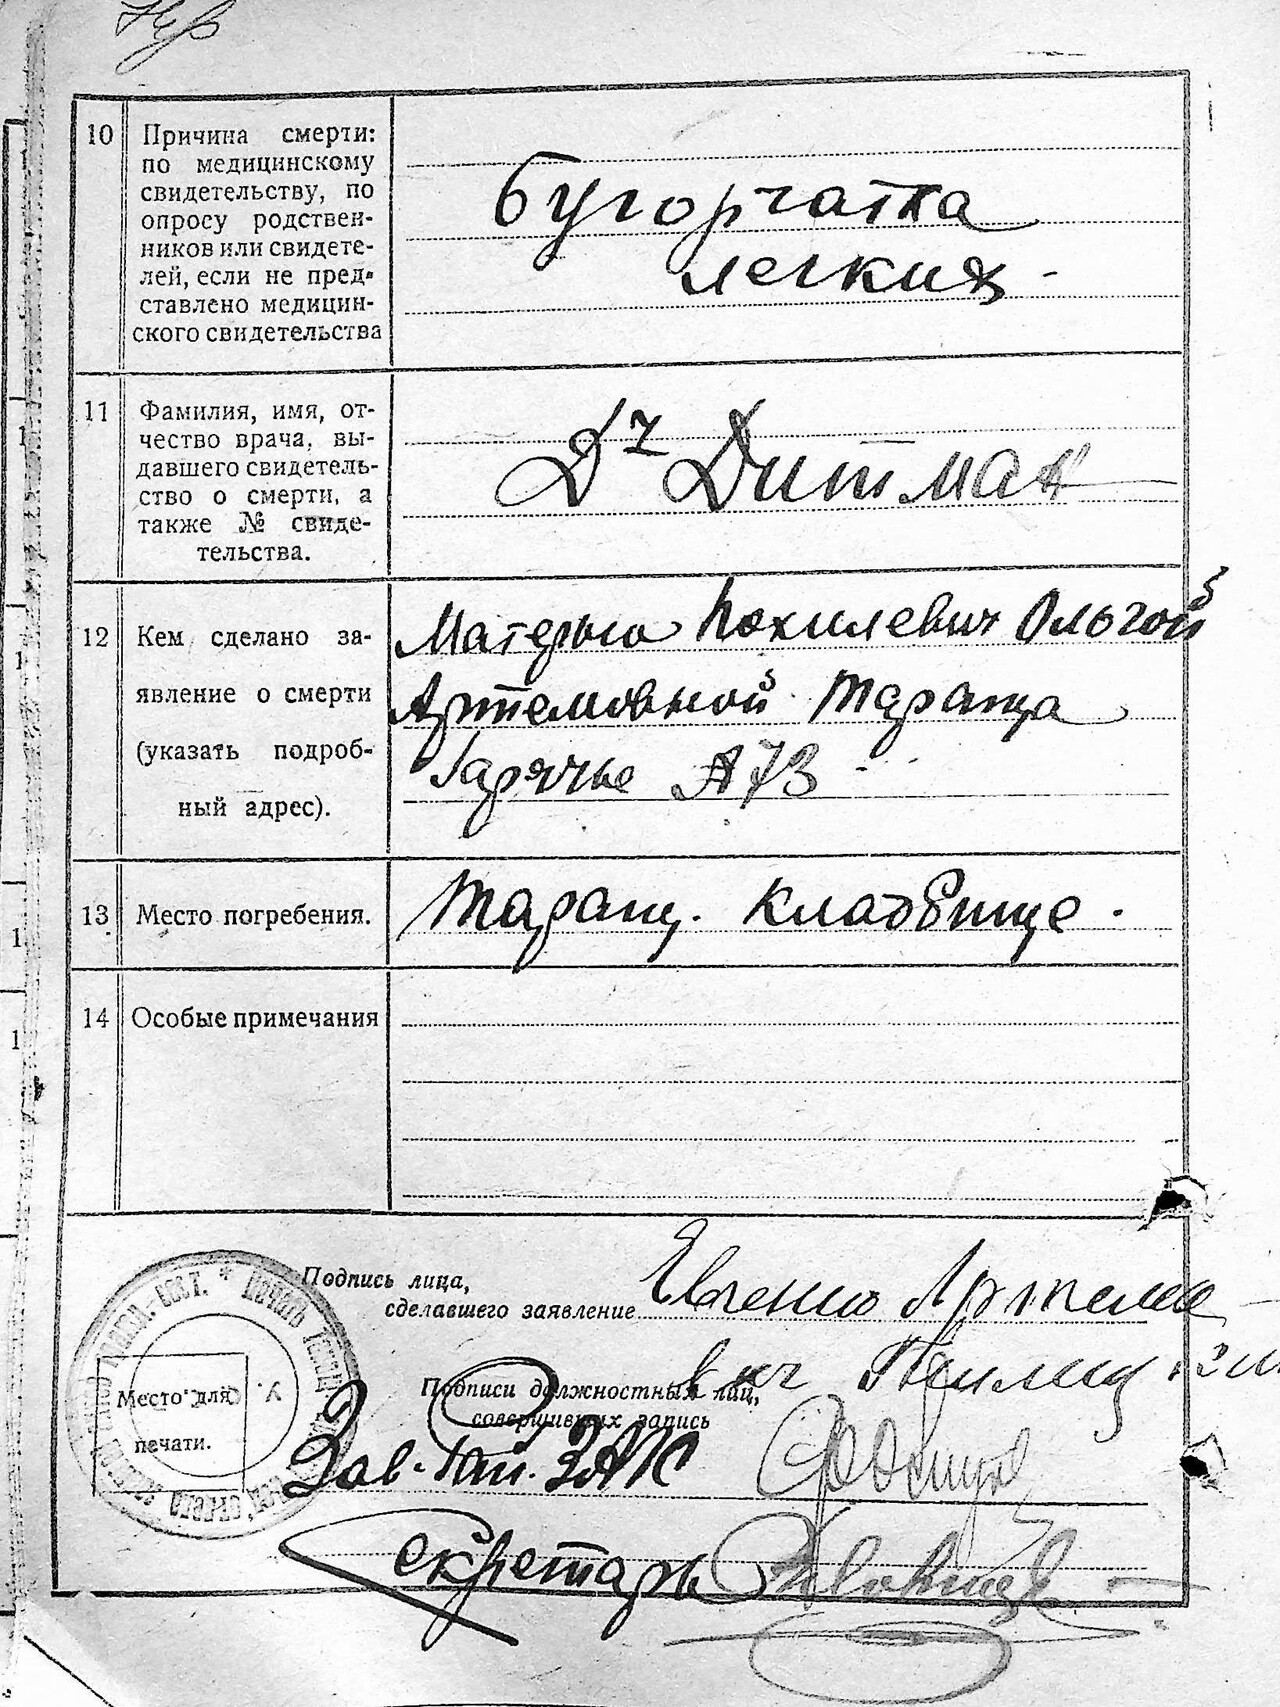 10
Причина смерти:
по медицинскому
свидетельству, по
опросу родствен-
ников или свидете-
лей, если не пред-
ставлено медицин-
ского свидетельства
Бугорчатка
легких
11
Фамилия, имя, от-
чество врача, вы-
давшего свидетель-
ство о смерти, а
также № свиде-
тельства.
Дч Дитман
12
Кем сделано за-
явление о смерти
(указать подроб-
ный адрес).
Матерью Похилевич Ольгой
Артемовной Тараща
А73
13
Место погребения.
Таращ. кладбище.
14
Особые примечания
Подпись лица,
сделавшего заявление
Место для
печати.
Подписи должностных лиц,
совершивших запись
Зав. Рай. ЗАГС
Секретарь